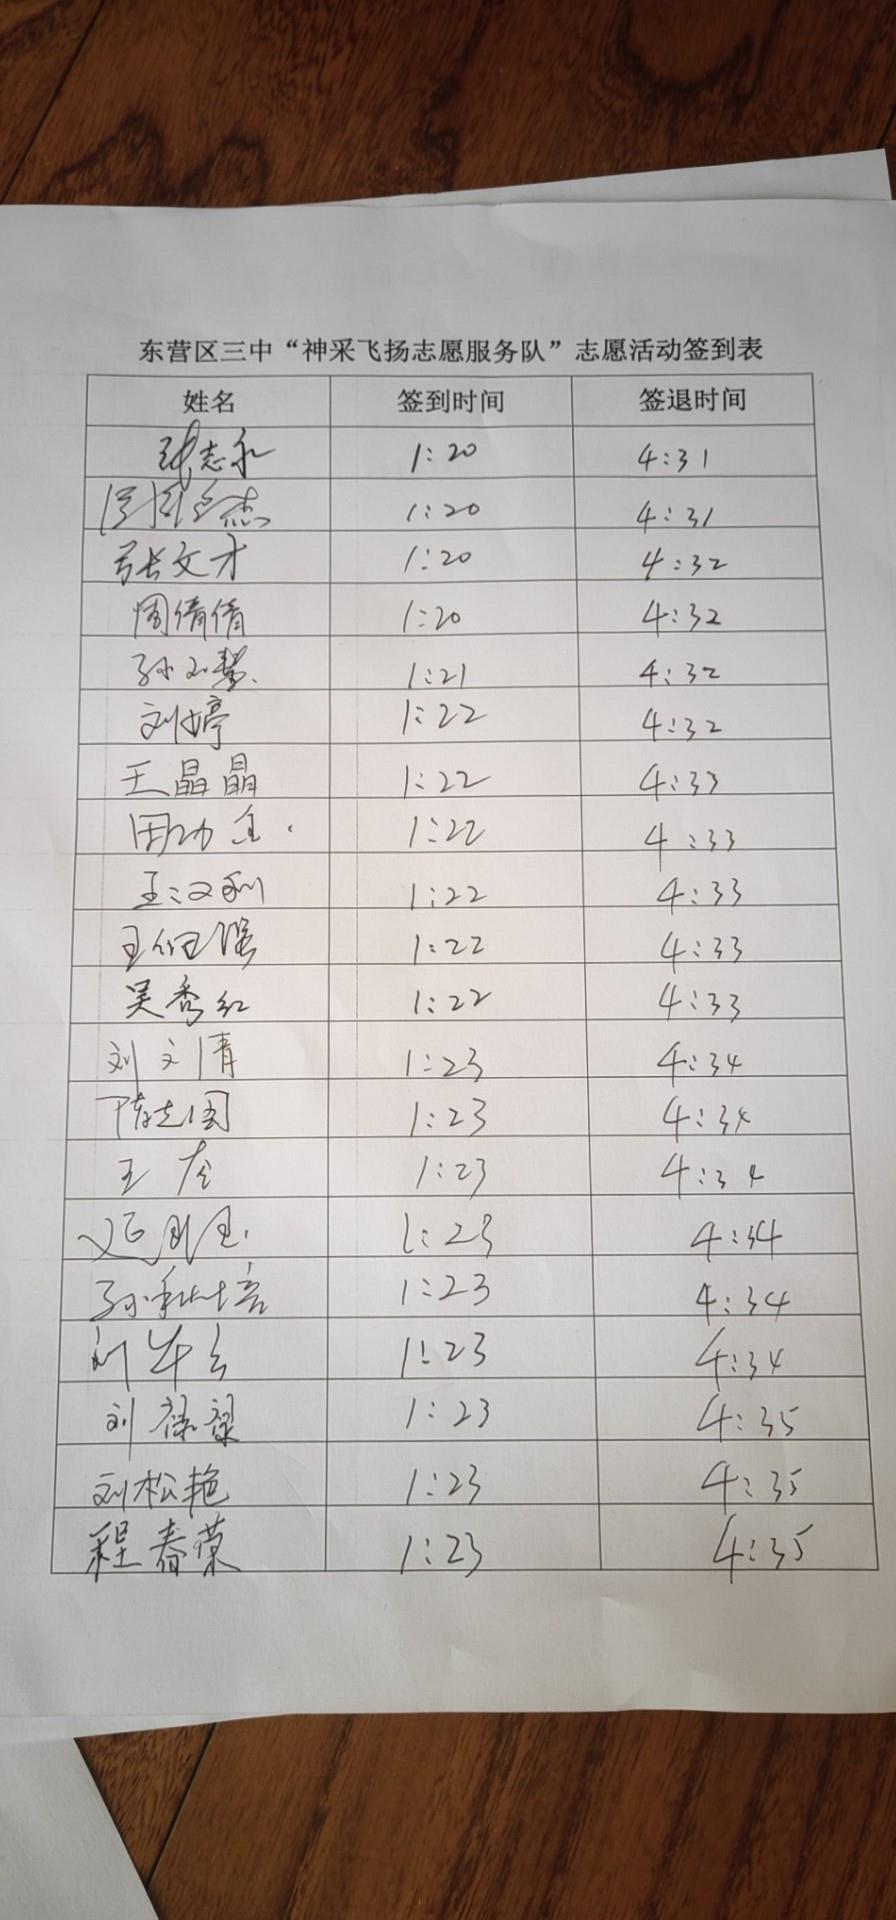 东营区三中“神采飞扬志愿服务队”志愿活动签到表
姓名 签到时间 签退时间
张志永 1:20 4:31
1:20 4:31
张文才 1:20 4:32
周倩倩 1:20 4:32
孙 1:21 4:32
刘婷 1:22 4:32
王晶晶 1:22 4:33
1:22 4:33
王汉利 1:22 4:33
王 1:22 4:33
吴秀红 1:22 4:33
刘文清 1:23 4:34
陈志国 1:23 4:34
王 1:23 4:34
1:23 4:34
孙 培 1:23 4:34
刘 1:23 4:34
刘禄禄 1:23 4:35
刘松艳 1:23 4:35
程春荣 1:23 4:35